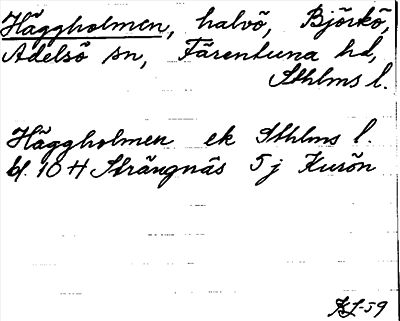 Häggholmen, halvö, Björkö,
Adelsö sn, Färentuna hd,
Sthlms l.
Häggholmen ek Sthlms l.
bl. 10 H Strängnäs 5 j Kurön
KL-59